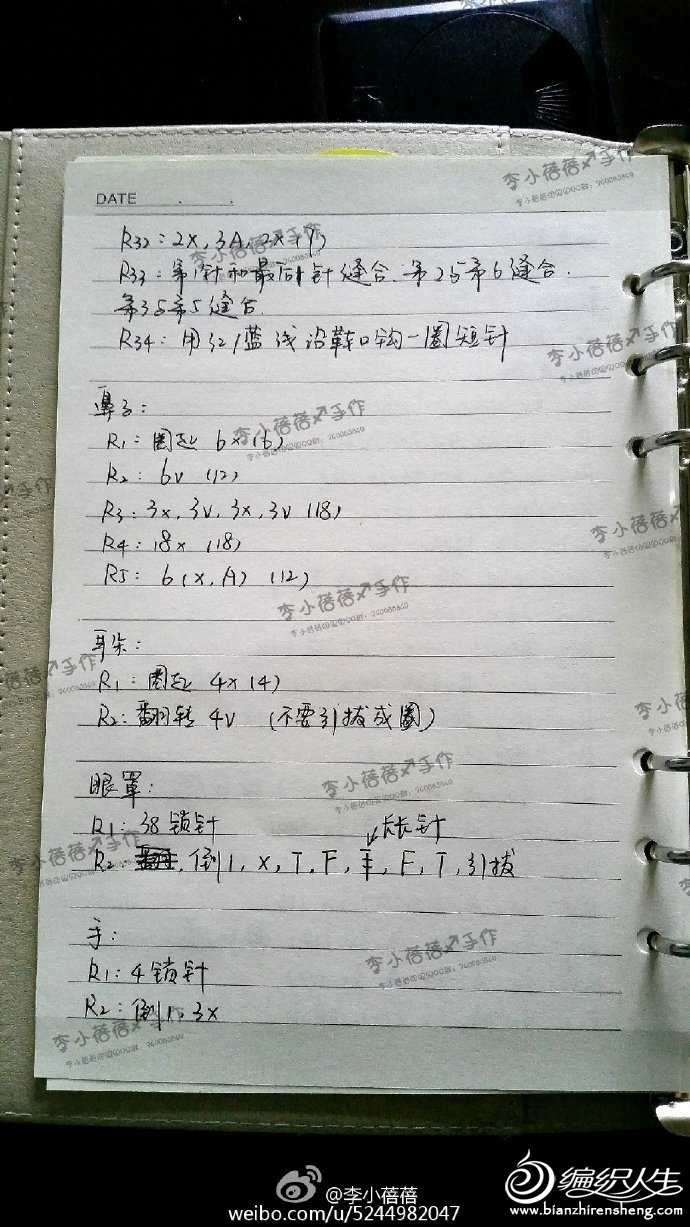 DATE
R32: 2X, 3A, 2X (7)
R33: 第1针和最后1针缝合. 第2与第6缝合.
第3与第5缝合.
R34: 用红/蓝线沿鞋口钩一圈短针
鼻子:
R1: 圈起 6X (6)
R2: 6V (12)
R3: 3X, 3V, 3X, 3V (18)
R4: 18X (18)
R5: 6(X, A) (12)
耳朵:
R1: 圈起 4X (4)
R2: 翻转 4V (不要引拔成圈)
眼罩:
R1: 38锁针
长长针
R2 倒1, X, T, F, E, F, T, 引拔
手:
R1: 4锁针
R2: 倒1, 3X
李小蓓蓓手作
@李小蓓蓓
weibo.com/u/5244982047
编织人生
www.bianzhirensheng.com